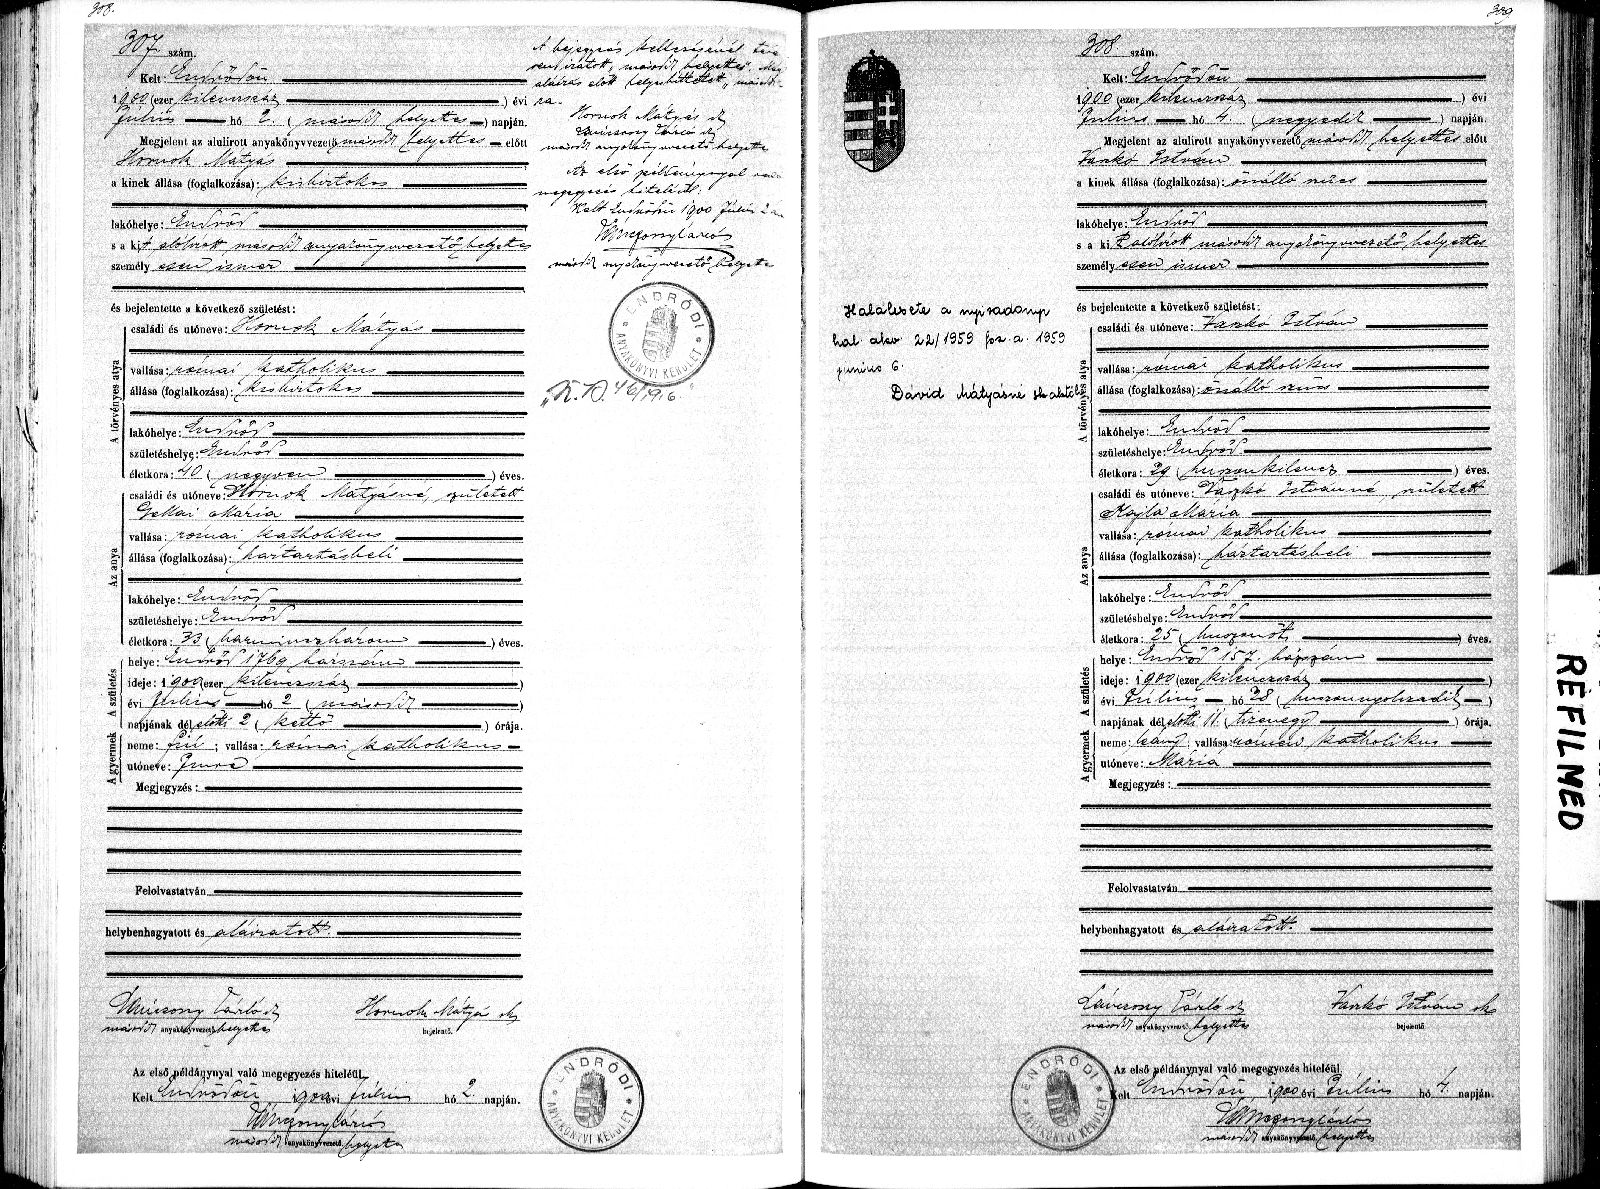 308.
307 szám.
Kelt: Endrődön
1900 (ezer kilenczszáz ) évi
Július hó 2. ( második helyettes ) napján.
Megjelent az alulirott anyakönyvvezető második helyettes előtt
Hornok Mátyás
a kinek állása (foglalkozása): kisbirtokos
lakóhelye: Endrőd
s a kit alólirott második anyakönyvvezető helyettes
személyesen ismer
és bejelentette a következő születést:
A törvényes atya
családi és utóneve: Hornok Mátyás
vallása: római katholikus
állása (foglalkozása): kisbirtokos
lakóhelye: Endrőd
születéshelye: Endrőd
életkora: 40 ( negyven ) éves.
Az anya
családi és utóneve: Hornok Mátyásné, született
Gellai Mária
vallása: római katholikus
állása (foglalkozása): háztartásbeli
lakóhelye: Endrőd
születéshelye: Endrőd
életkora: 33 ( harminczhárom ) éves.
A születés
helye: Endrőd 1769 házszám
ideje: 1900 (ezer kilenczszáz )
évi Július hó 2 ( második )
napjának dél előtti 2 ( kettő ) órája.
A gyermek
neme: fiú ; vallása: római katholikus
utóneve: Imre
Megjegyzés:
Felolvastatván
helybenhagyatott és aláiratott.
Károly
második anyakönyvvezető helyettes
Hornok Mátyás sk
bejelentő.
Az első példánynyal való megegyezés hiteléül.
Kelt Endrődön, 1900 évi Július hó 2 napján.
második anyakönyvvezető helyettes
ENDRŐDI ANYAKÖNYVI KERÜLET
A bejegyzés keltezésénél
második helyettes
aláirás előtt helyesbittetett
Hornok Mátyás sk
második anyakönyvvezető helyettes
Az első példánynyal való
megegyezés hiteléül.
Kelt Endrődön 1900 Július 2án
második anyakönyvvezető helyettes
ENDRŐDI ANYAKÖNYVI KERÜLET
309
308 szám.
Kelt: Endrődön
1900 (ezer kilenczszáz ) évi
Július hó 4. ( negyedik ) napján.
Megjelent az alulirott anyakönyvvezető második helyettes előtt
Vaskó István
a kinek állása (foglalkozása): önálló
lakóhelye: Endrőd
s a kit alólirott második anyakönyvvezető helyettes
személyesen ismer
és bejelentette a következő születést:
A törvényes atya
családi és utóneve: Vaskó István
vallása: római katholikus
állása (foglalkozása): önálló
lakóhelye: Endrőd
születéshelye: Endrőd
életkora: 29 ( huszonkilencz ) éves.
Az anya
családi és utóneve: Vaskó Istvánné, született
Kajla Mária
vallása: római katholikus
állása (foglalkozása): háztartásbeli
lakóhelye: Endrőd
születéshelye: Endrőd
életkora: 25 ( huszonöt ) éves.
A születés
helye: Endrőd 157. házszám
ideje: 1900 (ezer kilenczszáz )
évi hó 28 ( huszonnyolczadik )
napjának dél előtti 11. ( tizenegy ) órája.
A gyermek
neme: leány ; vallása: római katholikus
utóneve: Mária
Megjegyzés:
Felolvastatván
helybenhagyatott és aláiratott.
Károly sk
második anyakönyvvezető helyettes
Vaskó István sk
bejelentő
Az első példánynyal való megegyezés hiteléül.
Kelt Endrődön, 1900 évi Július hó 4. napján.
második anyakönyvvezető helyettes
ENDRŐDI ANYAKÖNYVI KERÜLET
Halálesete a
hal akv 22/1959 fsz. a. 1959
junius 6.
Dávid Mátyásné
REFILMED